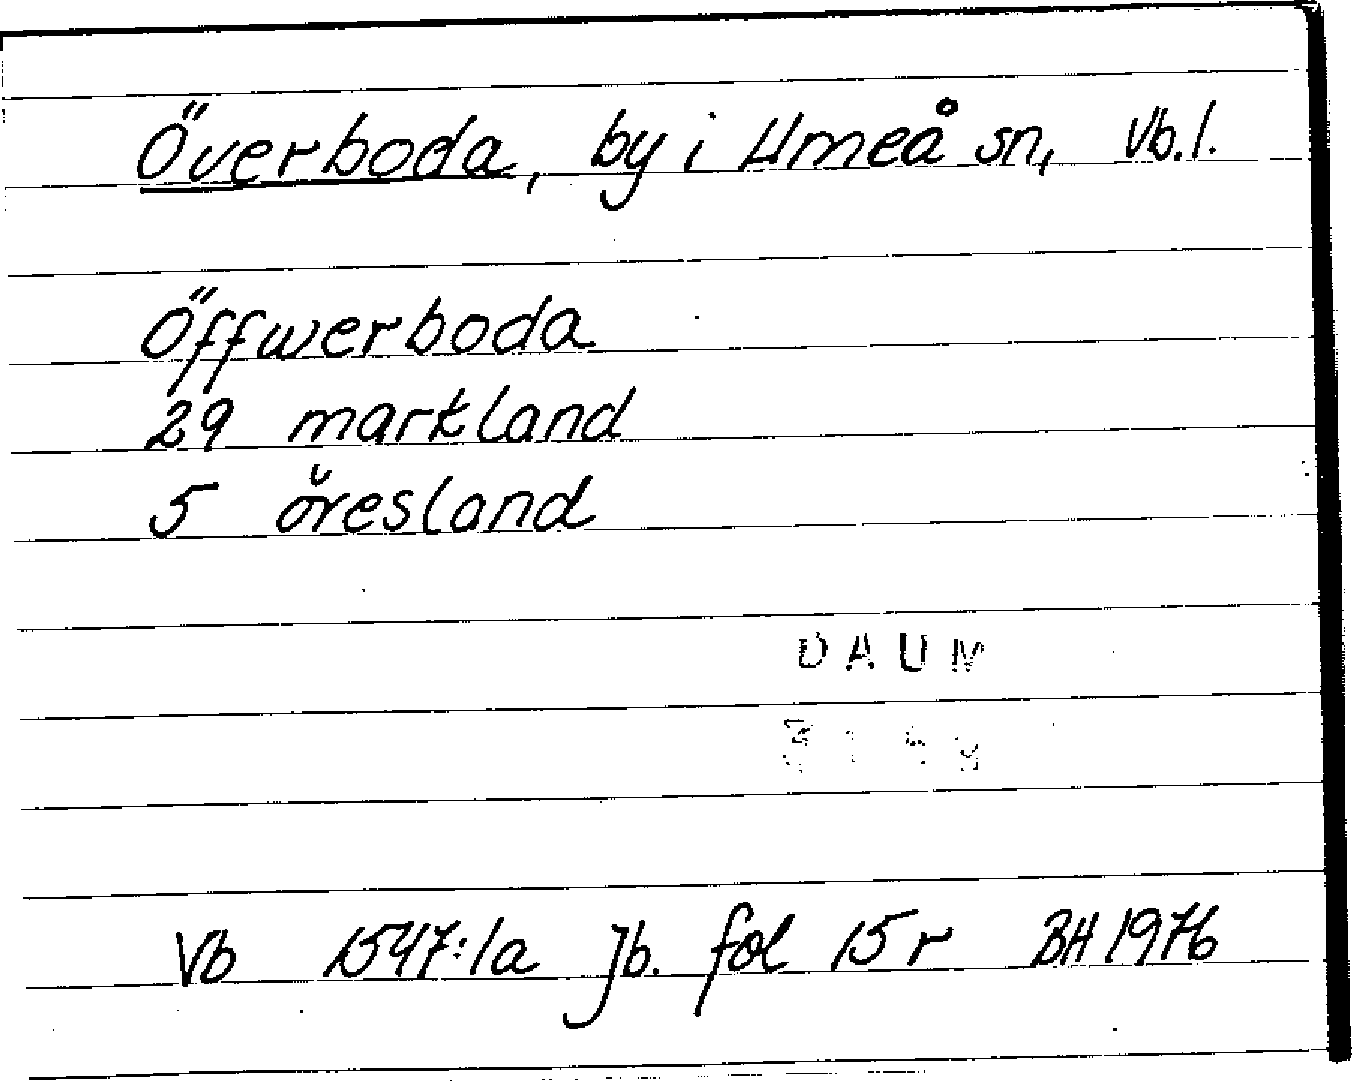 Överboda, by i Umeå sn, Vb.l.
Öffwerboda
29 markland
5 öresland
DAUM
Vb 1547:1a Jb. fol 15 r BH 1976